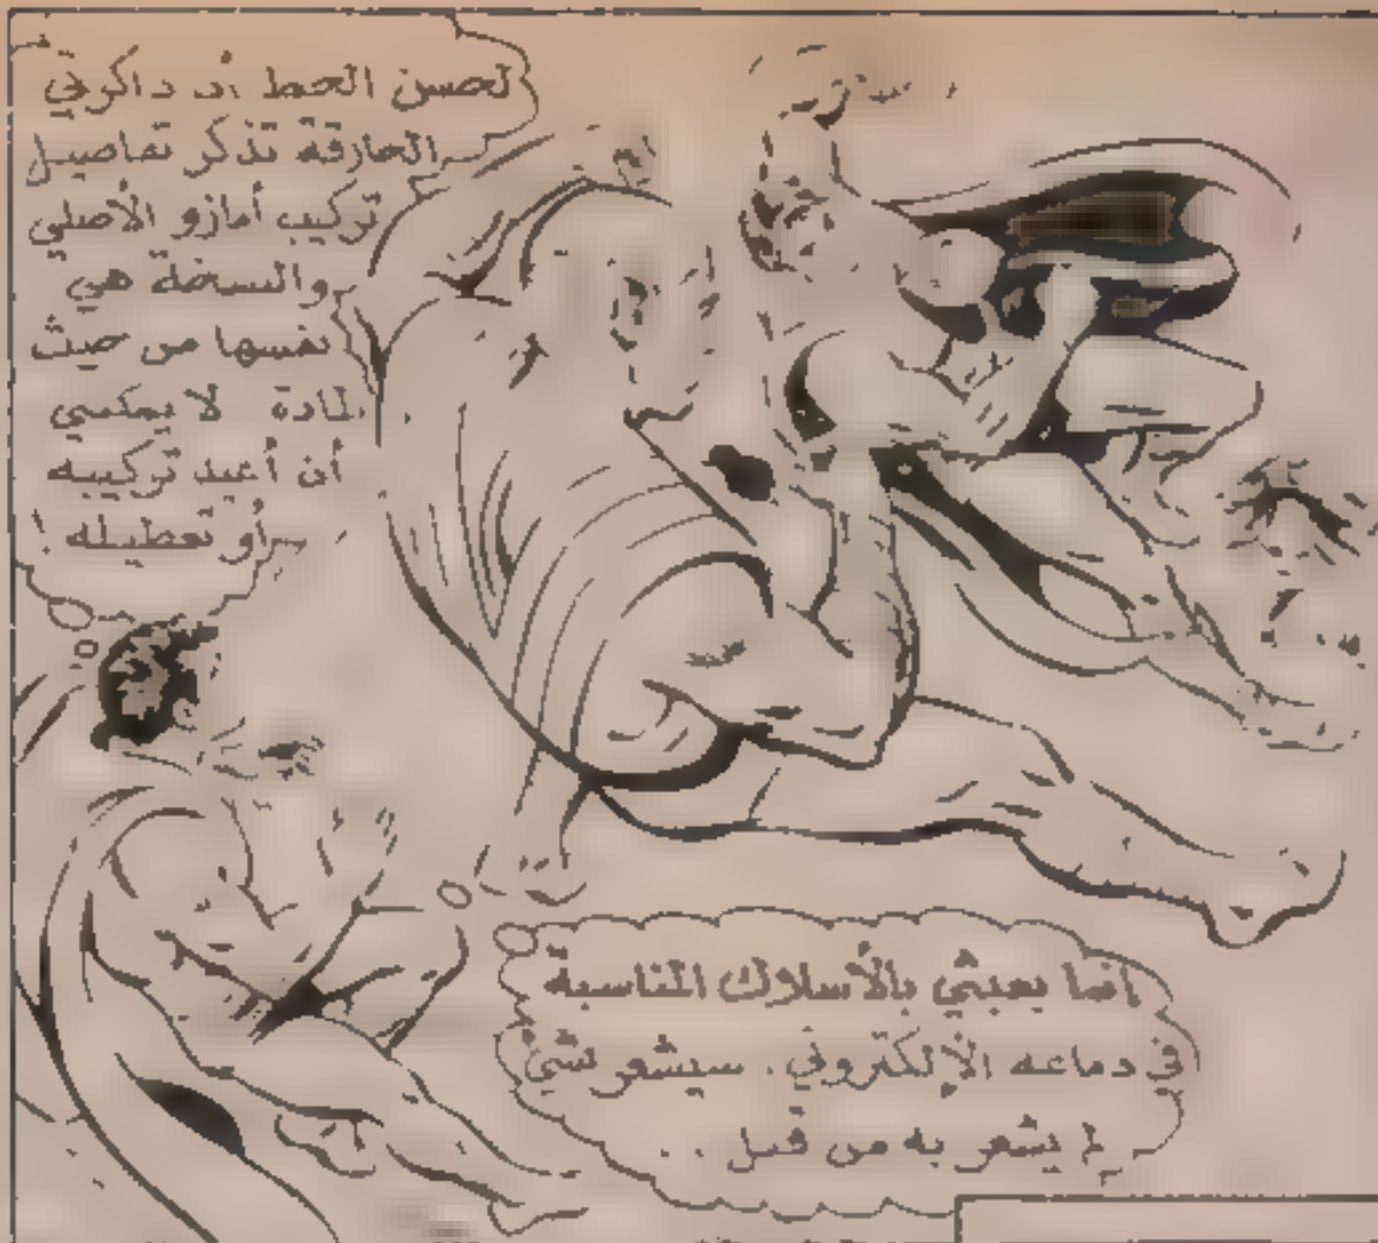 لحسن الحظ أن ذاكرتي
الخارقة تذكر تفاصيل
تركيب أمازو الأصلي
والنسخة هي
نفسها من حيث
المادة لا يمكنني
أن أعيد تركيبه
أو تعطيله !
إنما بعبثي بالأسلاك المناسبة
في دماغه الإلكتروني . سيشعر بشيئ
لم يشعر به من قبل . .